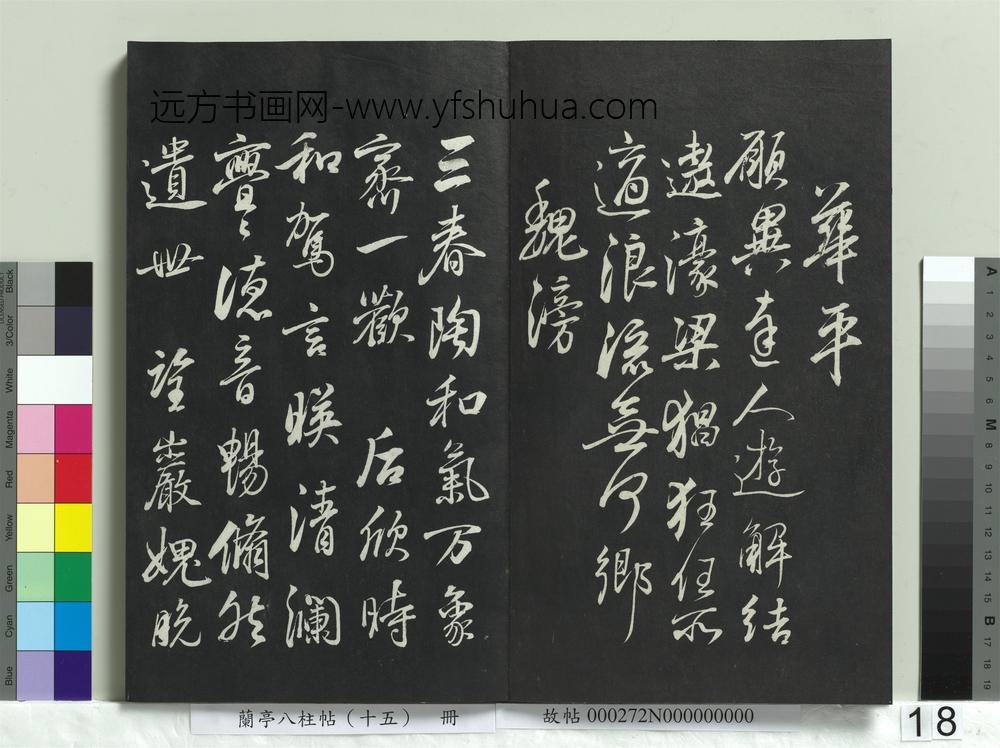 華平
願與達人遊解結
遨濠梁猖狂任所
適浪流無何鄉
魏滂
三春陶和氣万象
齊一歡 后欣時
和駕言暎清瀾
亹〻德音暢脩然
遺世 巖媿脫
远方书画网-www.yfshuhua.com
蘭亭八柱帖（十五） 冊
故帖 000272N000000000
18
Black
3/Color
White
Magenta
Red
Yellow
Green
Cyan
Blue
A 1 2 3 4 5 6 M 8 9 10 11 12 13 14 15 B 17 18 19